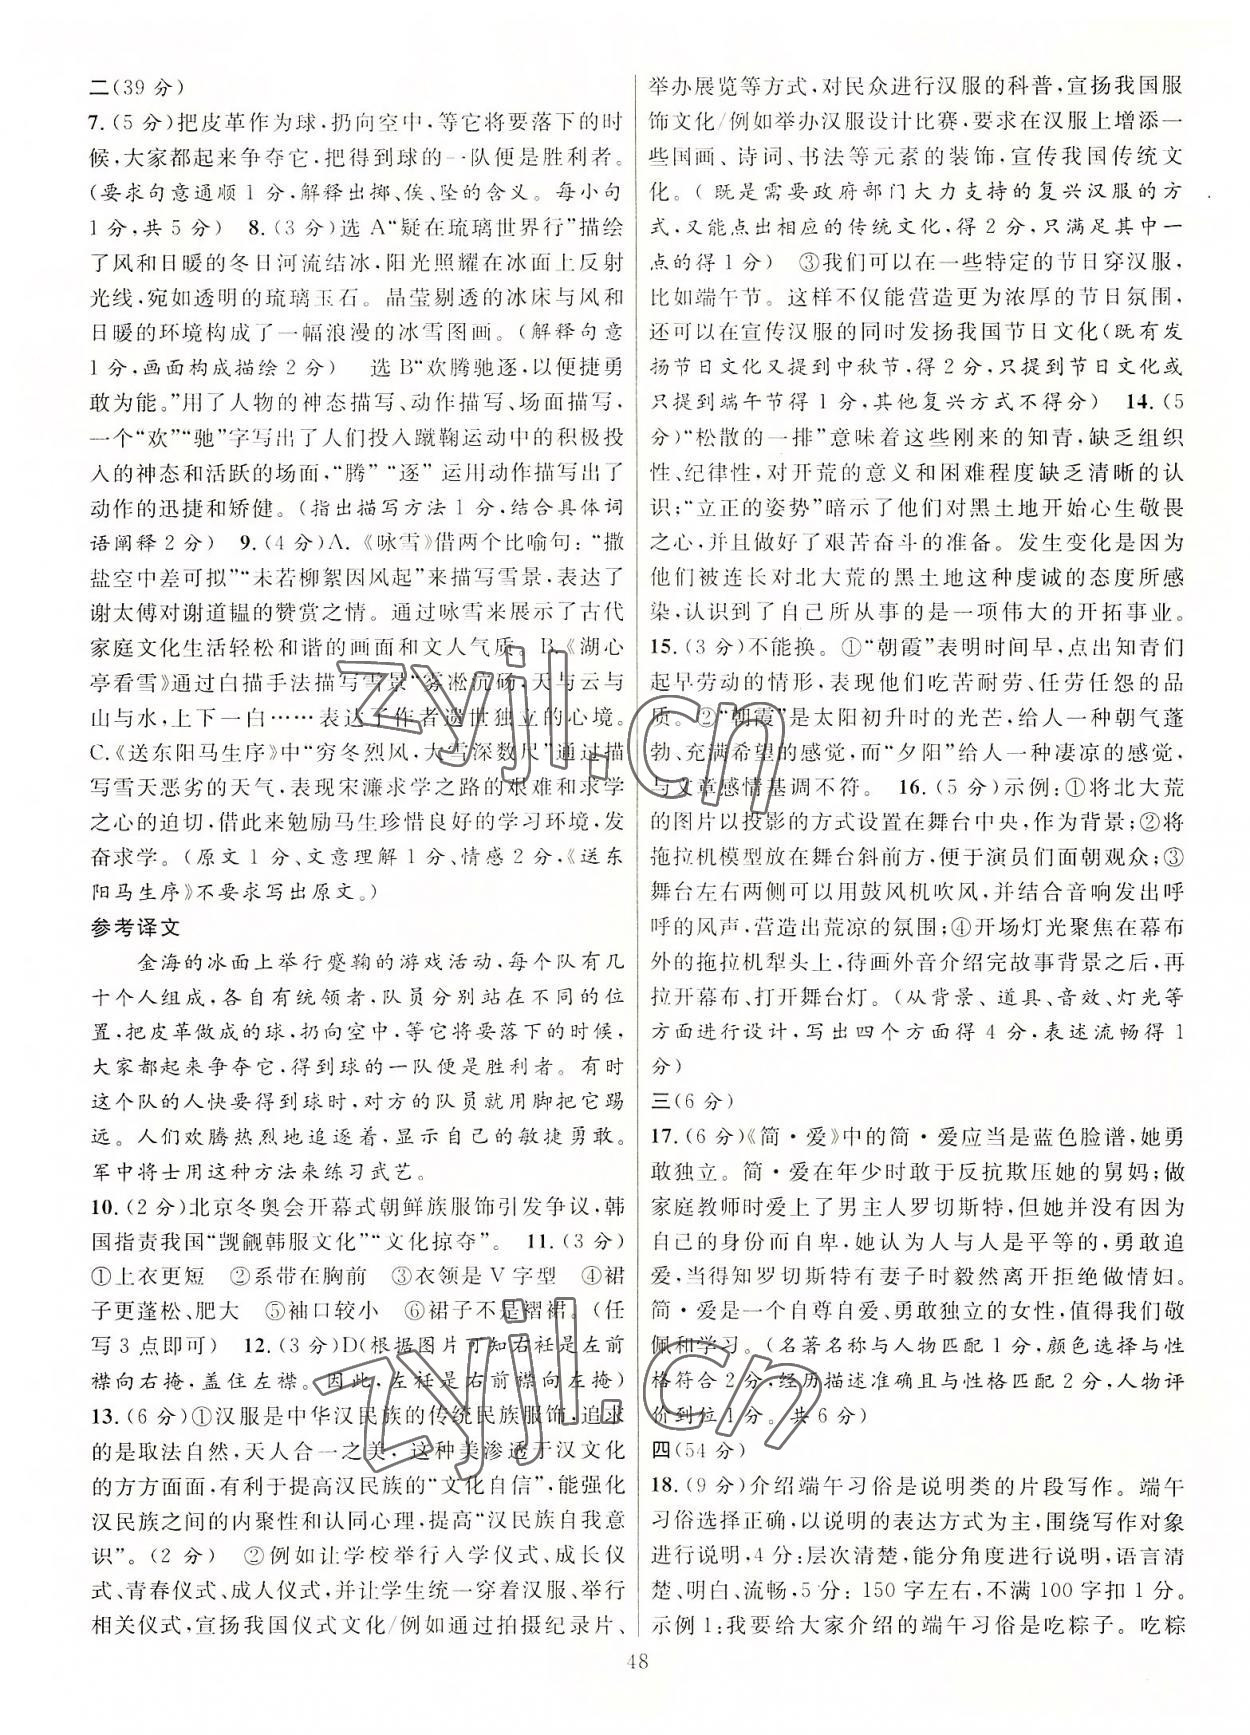 二(39 分)
7.(5 分)把皮革作为球,扔向空中,等它将要落下的时
候,大家都起来争夺它,把得到球的一队便是胜利者。
(要求句意通顺 1 分,解释出掷、俟、坠的含义。每小句
1 分,共 5 分) 8.(3 分)选 A“疑在琉璃世界行”描绘
了风和日暖的冬日河流结冰,阳光照耀在冰面上反射
光线,宛如透明的琉璃玉石。晶莹剔透的冰床与风和
日暖的环境构成了一幅浪漫的冰雪图画。(解释句意
1 分,画面构成描绘 2 分) 选 B“欢腾驰逐,以便捷勇
敢为能。”用了人物的神态描写、动作描写、场面描写,
一个“欢”“驰”字写出了人们投入蹴鞠运动中的积极投
入的神态和活跃的场面,“腾”“逐”运用动作描写出了
动作的迅捷和矫健。(指出描写方法 1 分,结合具体词
语阐释 2 分) 9.(4 分)A.《咏雪》借两个比喻句:“撒
盐空中差可拟”“未若柳絮因风起”来描写雪景,表达了
谢太傅对谢道韫的赞赏之情。通过咏雪来展示了古代
家庭文化生活轻松和谐的画面和文人气质。B.《湖心
亭看雪》通过白描手法描写雪景“雾凇沆砀,天与云与
山与水,上下一白……表达了作者遗世独立的心境。
C.《送东阳马生序》中“穷冬烈风,大雪深数尺”通过描
写雪天恶劣的天气,表现宋濂求学之路的艰难和求学
之心的迫切,借此来勉励马生珍惜良好的学习环境,发
奋求学。(原文 1 分、文意理解 1 分、情感 2 分,《送东
阳马生序》不要求写出原文。)
参考译文
金海的冰面上举行蹙鞠的游戏活动,每个队有几
十个人组成,各自有统领者,队员分别站在不同的位
置,把皮革做成的球,扔向空中,等它将要落下的时候,
大家都起来争夺它,得到球的一队便是胜利者。有时
这个队的人快要得到球时,对方的队员就用脚把它踢
远。人们欢腾热烈地追逐着,显示自己的敏捷勇敢。
军中将士用这种方法来练习武艺。
10.(2 分)北京冬奥会开幕式朝鲜族服饰引发争议,韩
国指责我国“觊觎韩服文化”“文化掠夺”。 11.(3 分)
①上衣更短 ②系带在胸前 ③衣领是 V 字型 ④裙
子更蓬松、肥大 ⑤袖口较小 ⑥裙子不是褶裙。(任
写 3 点即可) 12.(3 分)D(根据图片可知右衽是左前
襟向右掩,盖住左襟。因此,左衽是右前襟向左掩)
13.(6 分)①汉服是中华汉民族的传统民族服饰,追求
的是取法自然,天人合一之美,这种美渗透于汉文化
的方方面面,有利于提高汉民族的“文化自信”,能强化
汉民族之间的内聚性和认同心理,提高“汉民族自我意
识”。(2 分) ②例如让学校举行入学仪式、成长仪
式、青春仪式、成人仪式,并让学生统一穿着汉服、举行
相关仪式,宣扬我国仪式文化/例如通过拍摄纪录片、
举办展览等方式,对民众进行汉服的科普,宣扬我国服
饰文化/例如举办汉服设计比赛,要求在汉服上增添一
些国画、诗词、书法等元素的装饰,宣传我国传统文
化。(既是需要政府部门大力支持的复兴汉服的方
式,又能点出相应的传统文化,得 2 分,只满足其中一
点的得 1 分) ③我们可以在一些特定的节日穿汉服,
比如端午节。这样不仅能营造更为浓厚的节日氛围,
还可以在宣传汉服的同时发扬我国节日文化(既有发
扬节日文化又提到中秋节,得 2 分,只提到节日文化或
只提到端午节得 1 分,其他复兴方式不得分) 14.(5
分)“松散的一排”意味着这些刚来的知青,缺乏组织
性、纪律性,对开荒的意义和困难程度缺乏清晰的认
识;“立正的姿势”暗示了他们对黑土地开始心生敬畏
之心,并且做好了艰苦奋斗的准备。发生变化是因为
他们被连长对北大荒的黑土地这种虔诚的态度所感
染,认识到了自己所从事的是一项伟大的开拓事业。
15.(3 分)不能换。①“朝霞”表明时间早,点出知青们
起早劳动的情形,表现他们吃苦耐劳、任劳任怨的品
质。②“朝霞”是太阳初升时的光芒,给人一种朝气蓬
勃、充满希望的感觉,而“夕阳”给人一种凄凉的感觉,
与文章感情基调不符。 16.(5 分)示例:①将北大荒
的图片以投影的方式设置在舞台中央,作为背景;②将
拖拉机模型放在舞台斜前方,便于演员们面朝观众;③
舞台左右两侧可以用鼓风机吹风,并结合音响发出呼
呼的风声,营造出荒凉的氛围;④开场灯光聚焦在幕布
外的拖拉机犁头上,待画外音介绍完故事背景之后,再
拉开幕布、打开舞台灯。(从背景、道具、音效、灯光等
方面进行设计,写出四个方面得 4 分,表述流畅得 1
分)
三(6 分)
17.(6 分)《简·爱》中的简·爱应当是蓝色脸谱,她勇
敢独立。简·爱在年少时敢于反抗欺压她的舅妈;做
家庭教师时爱上了男主人罗切斯特,但她并没有因为
自己的身份而自卑,她认为人与人是平等的,勇敢追
爱,当得知罗切斯特有妻子时毅然离开拒绝做情妇。
简·爱是一个自尊自爱、勇敢独立的女性,值得我们敬
佩和学习。(名著名称与人物匹配 1 分,颜色选择与性
格符合 2 分,经历描述准确且与性格匹配 2 分,人物评
价到位 1 分。共 6 分)
四(54 分)
18.(9 分)介绍端午习俗是说明类的片段写作。端午
习俗选择正确,以说明的表达方式为主,围绕写作对象
进行说明,4 分;层次清楚,能分角度进行说明,语言清
楚、明白、流畅,5 分;150 字左右,不满 100 字扣 1 分。
示例 1:我要给大家介绍的端午习俗是吃粽子。吃粽
48
zyjl.cn
zyjl.cn